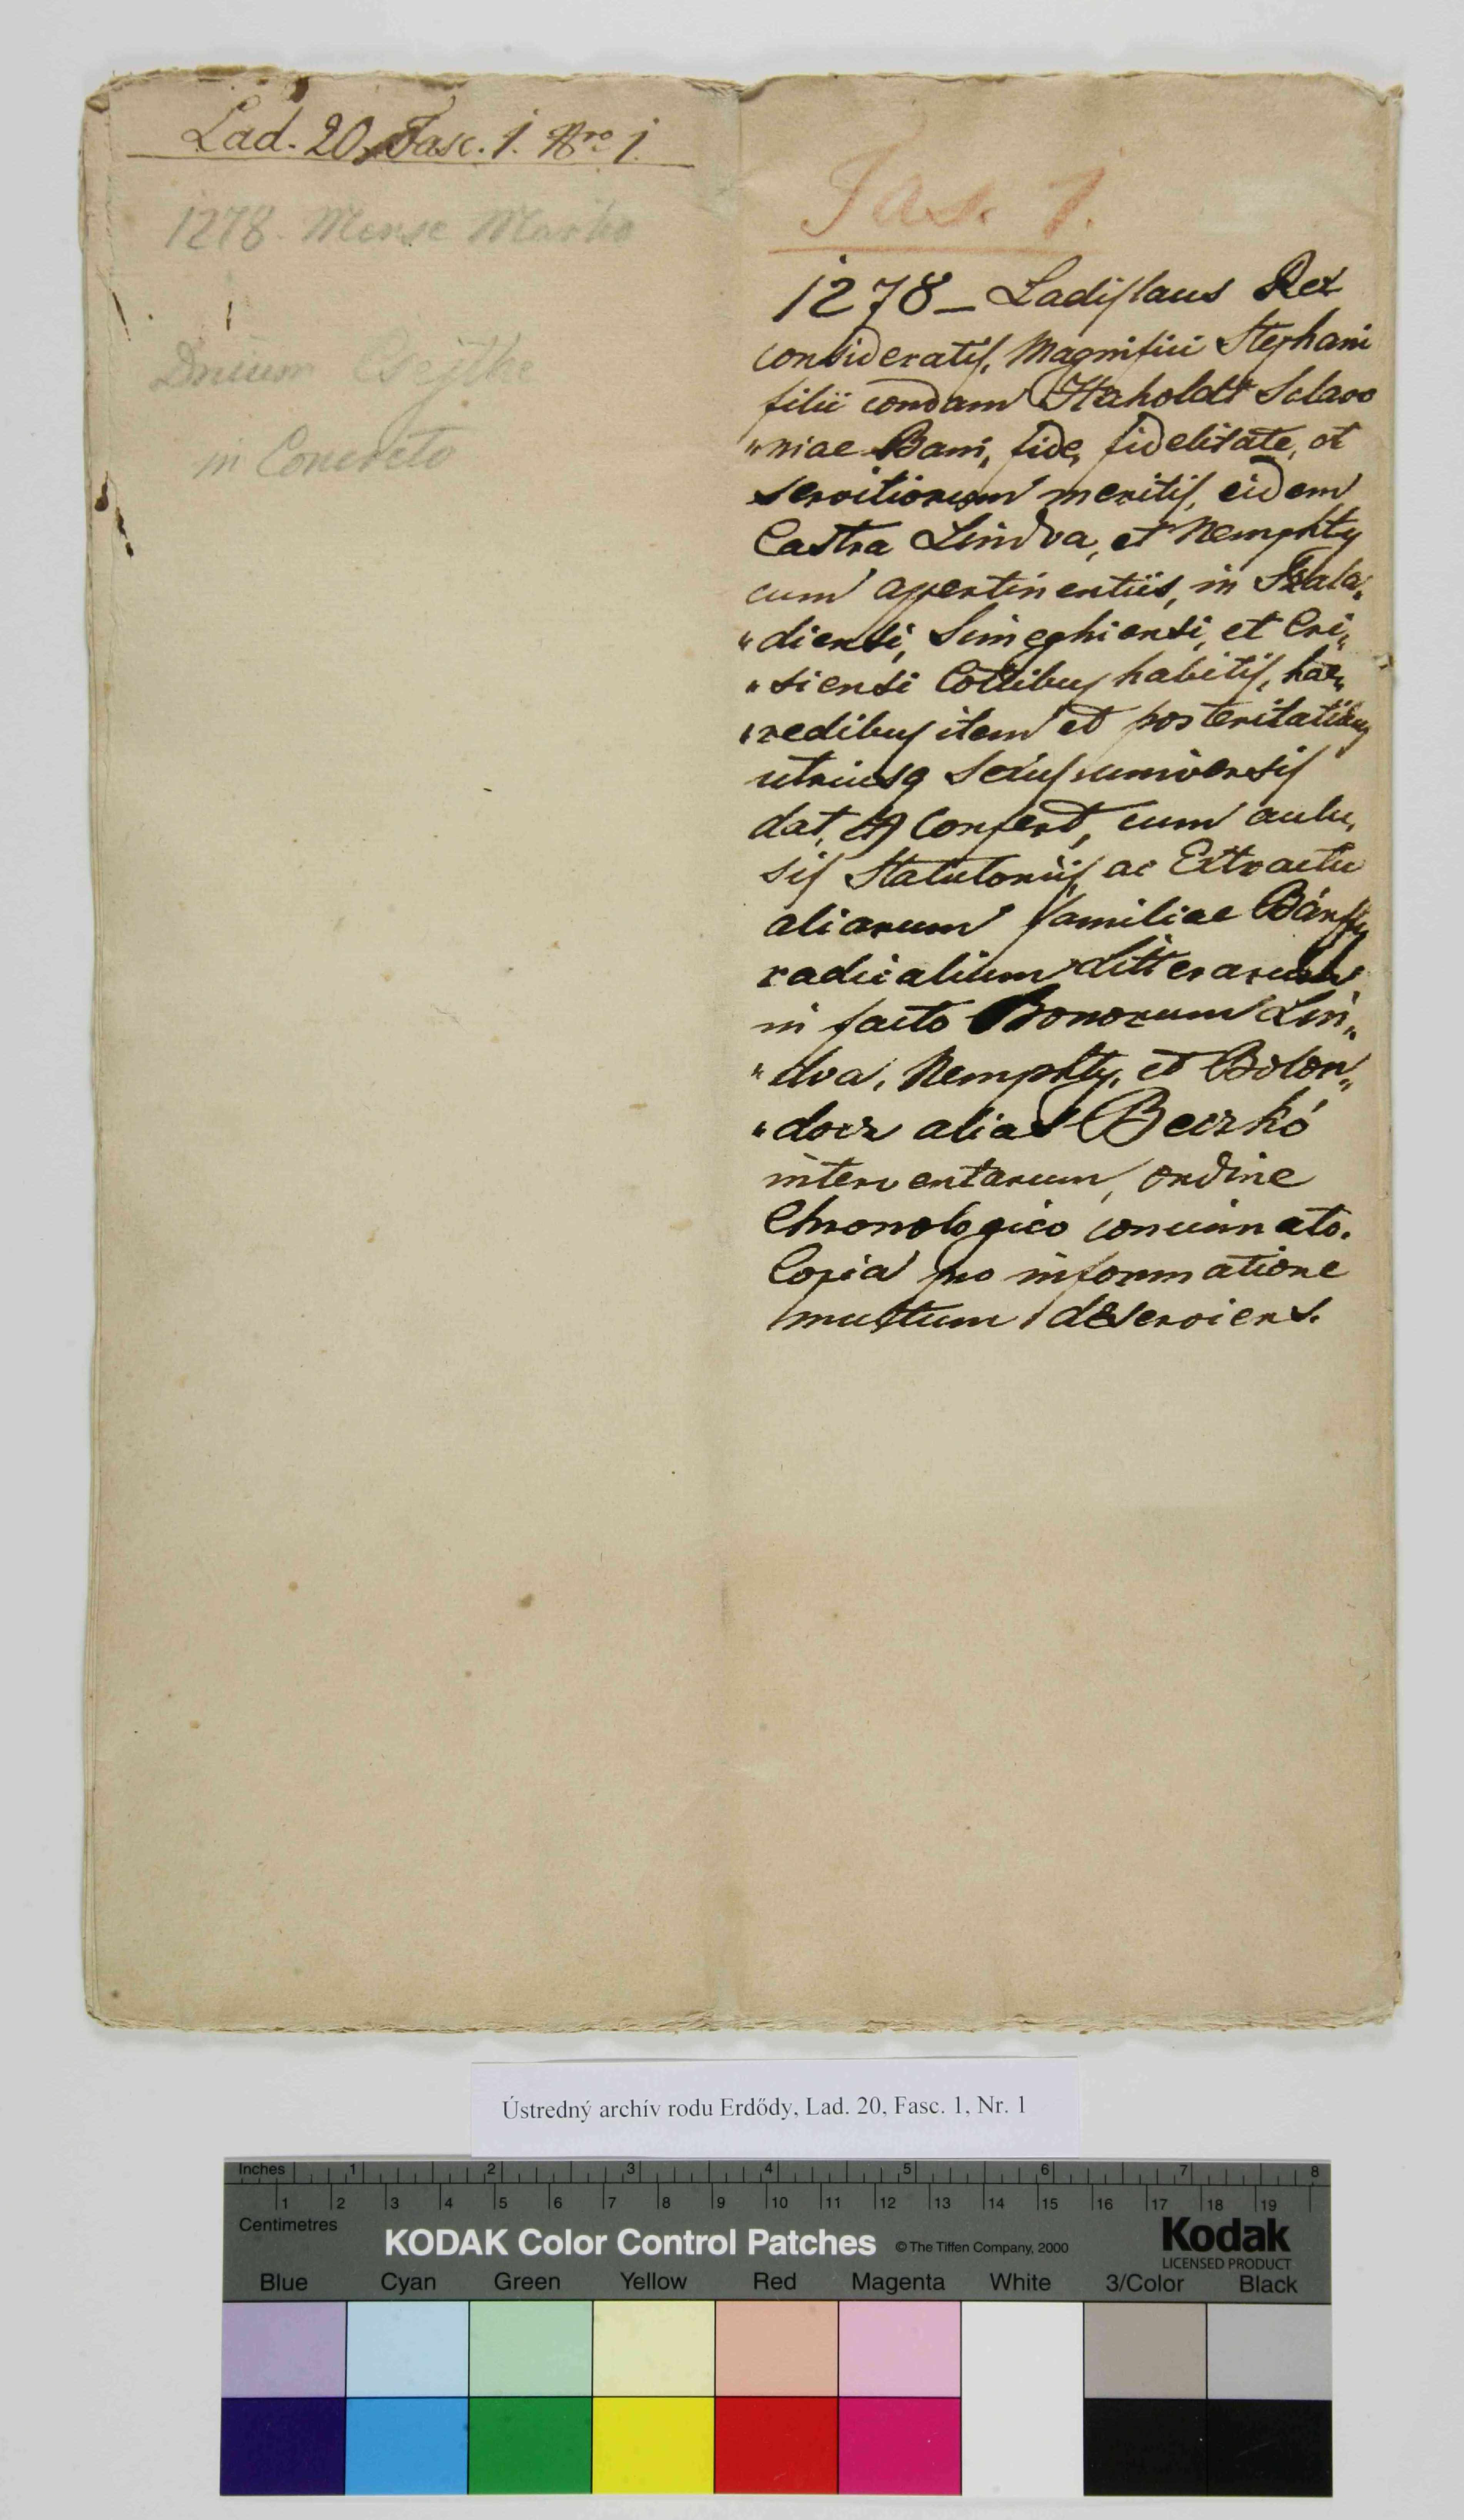 Lad. 20, Fasc. 1. Nro 1.
1278. Mense Martio
Dnium Csejthe
in Concreto
Fas. 1.
1278 – Ladislaus Rex
consideratis, Magnifici Stephani
filii condam Haholdt Sclavo
"niae Bani, fide, fidelitate, et
servitiorum meritis, eidem
Castra Lindva, et Nemphty
cum apertinentiis, in Szala„
"diensi, Simeghiensi, et Cri„
"siensi Cottibus habitis, hae„
"redibus item et posteritatibus
utriusq Sexus universis
dat, et Confert, cum aclu„
sis Statutoriis, ac Extractu
aliarum familiae Bánffy
radicalium Litterarum
in facto Bonorum Lin„
"dva, Nemphty, et Bolon„
"docz alias Beczkó
interventarum, ordine
Chronologico concinnato.
Copia pro informatione
multum deserviens.
Ústredný archív rodu Erdődy, Lad. 20, Fasc. 1, Nr. 1
Inches 1 2 3 4 5 6 7 8
1 2 3 4 5 6 7 8 9 10 11 12 13 14 15 16 17 18 19
Centimetres
KODAK Color Control Patches © The Tiffen Company, 2000 Kodak
LICENSED PRODUCT
Blue Cyan Green Yellow Red Magenta White 3/Color Black